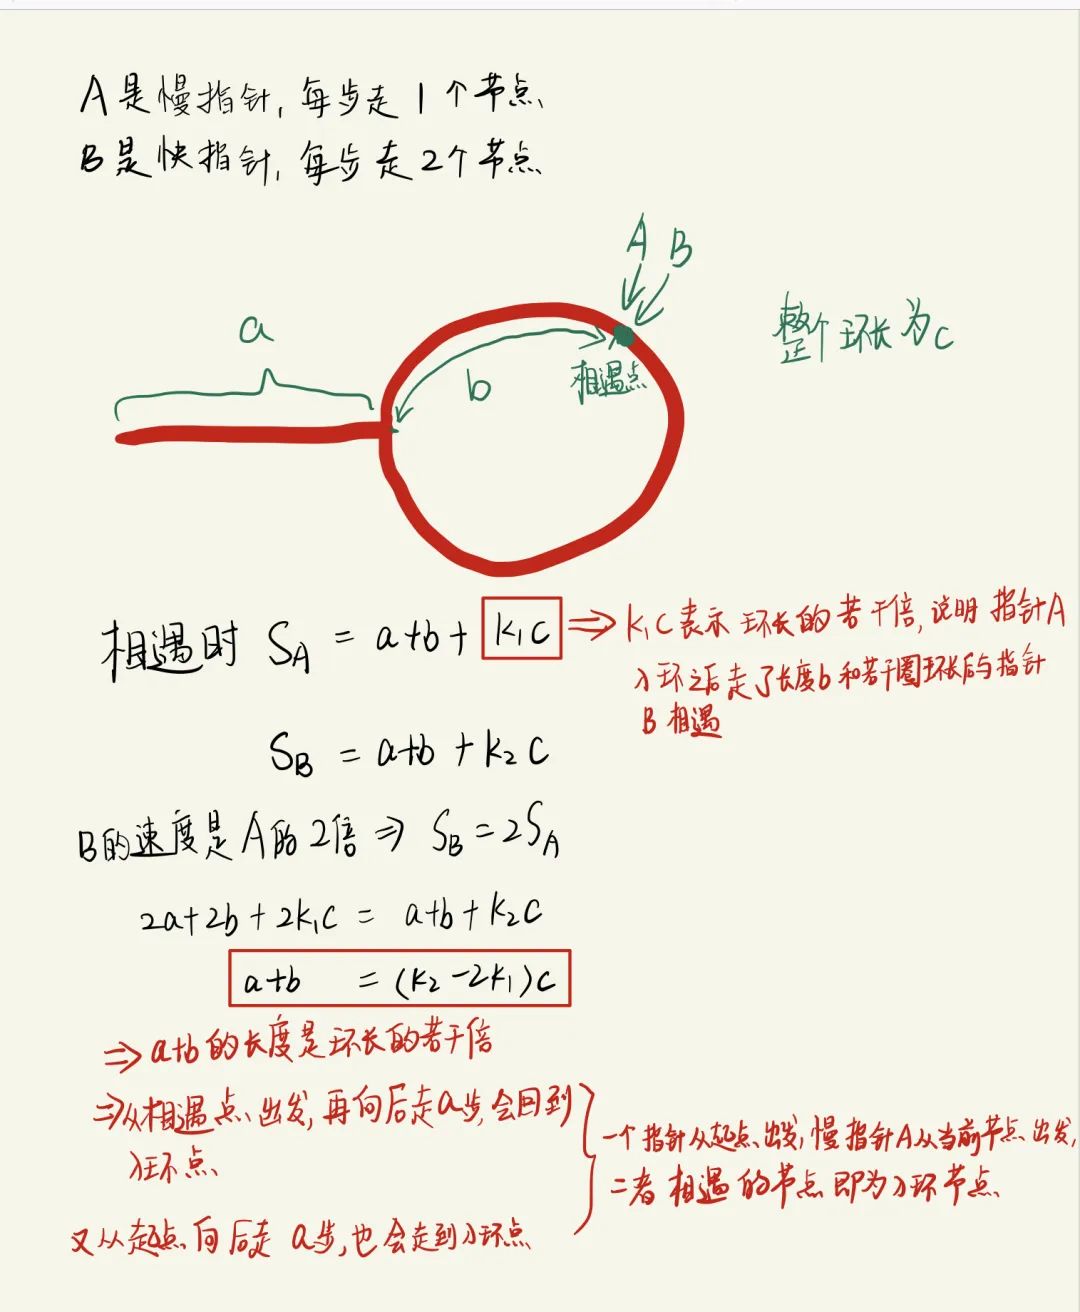 A是慢指针,每步走1个节点
B是快指针,每步走2个节点
A B
a
整个环长为c
b
相遇点
相遇时 S_A = a+b+ k₁c ⇒ k₁c表示环长的若干倍,说明指针A
入环之后走了长度b和若干圈环长后与指针
B相遇
S_B = a+b+k₂c
B的速度是A的2倍 ⇒ S_B=2S_A
2a+2b+2k₁c = a+b+k₂c
a+b = (k₂-2k₁)c
⇒ a+b的长度是环长的若干倍
⇒从相遇点出发,再向后走a步,会回到
入环点
又从起点向后走a步,也会走到入环点
一个指针从起点出发,慢指针A从当前节点出发,
二者相遇的节点即为入环节点